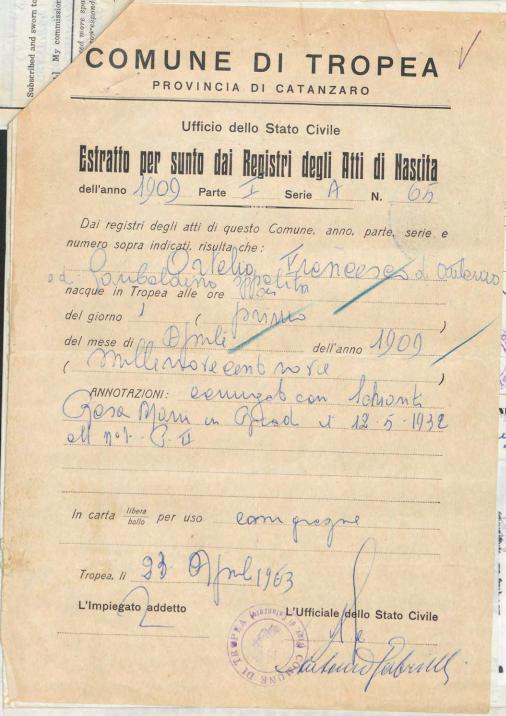 Subscribed and sworn to
] My commission
COMUNE DI TROPEA
PROVINCIA DI CATANZARO
Ufficio dello Stato Civile
Estratto per sunto dai Registri degli Atti di Nascita
dell'anno 1909 Parte I Serie A N. 65
Dai registri degli atti di questo Comune, anno, parte, serie e
numero sopra indicati, risulta che:
Ortelio Francesco di
e di Garibaldino Ippolita
nacque in Tropea alle ore
del giorno 1 ( primo )
del mese di Aprile dell'anno 1909
( millenovecentonove )
ANNOTAZIONI: coniugato con
Rosa Maria in il 12-5-1932
all n° 1. P. II
In carta libera/bollo per uso
Tropea, li 23 April 1963
L'Impiegato addetto L'Ufficiale dello Stato Civile
COMUNE DI TROPEA